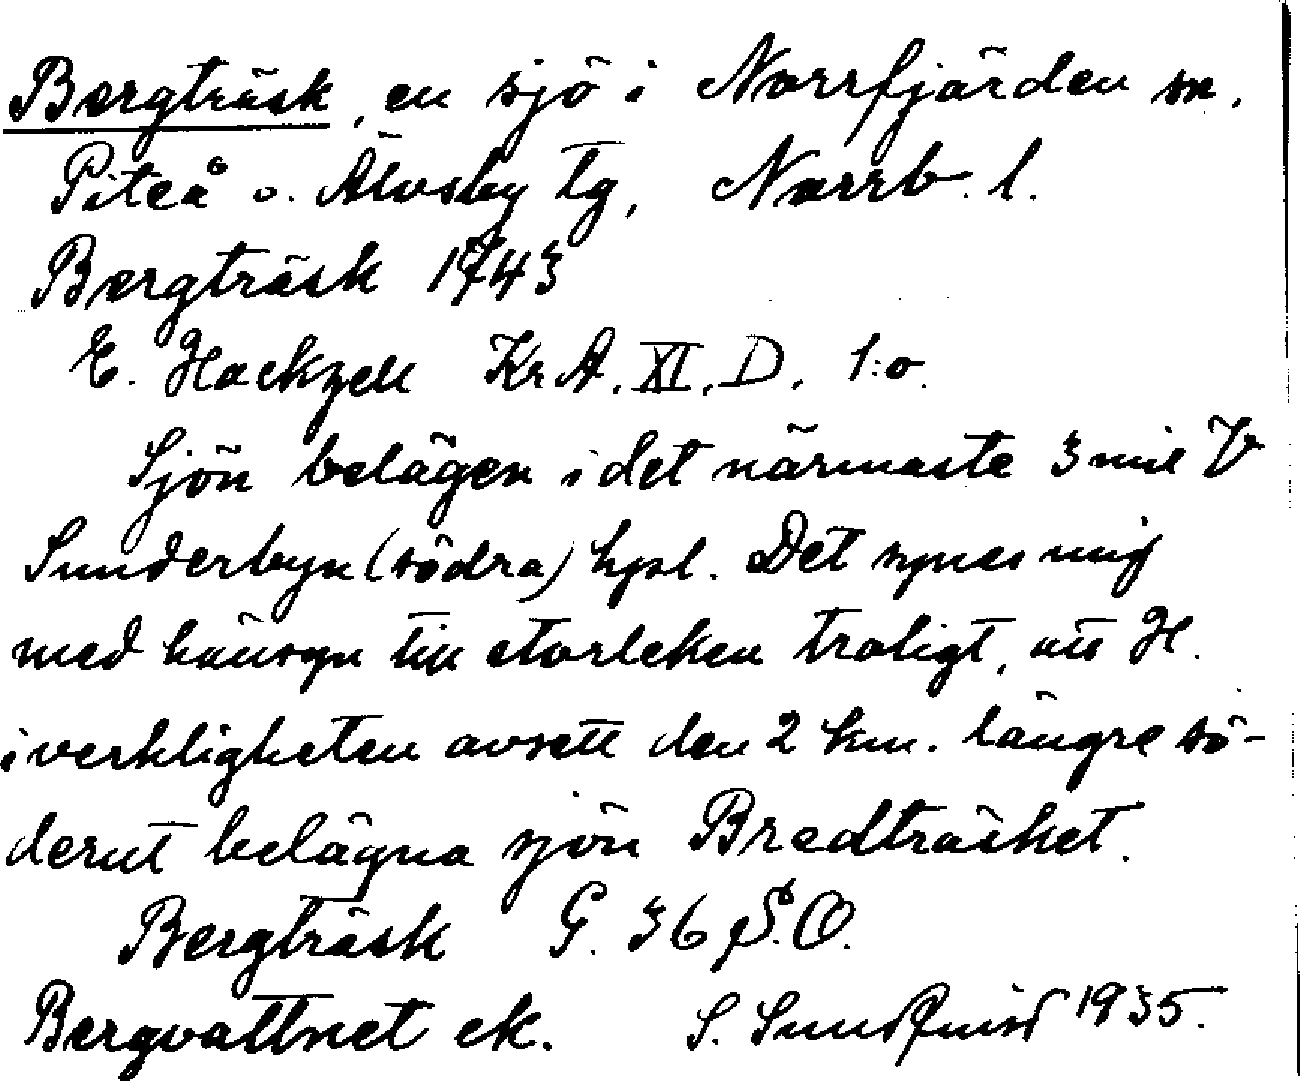 Bergträsk, en sjö i Norrfjärden sn.
Piteå o. Älvsby tg, Norrb. l.
Bergträsk 1743
E. Hackzell Kr A. XI. D. 1:o.
Sjön belägen i det närmaste 3 mil V
Sunderbyn (södra) hpl. Det synes mig
med hänsyn till storleken troligt, att H.
i verkligheten avsett den 2 km. längre sö-
derut belägna sjön Bredträsket.
Bergträsk G. 36 S.O.
Bergvattnet ek. S. Sundquist 1935.